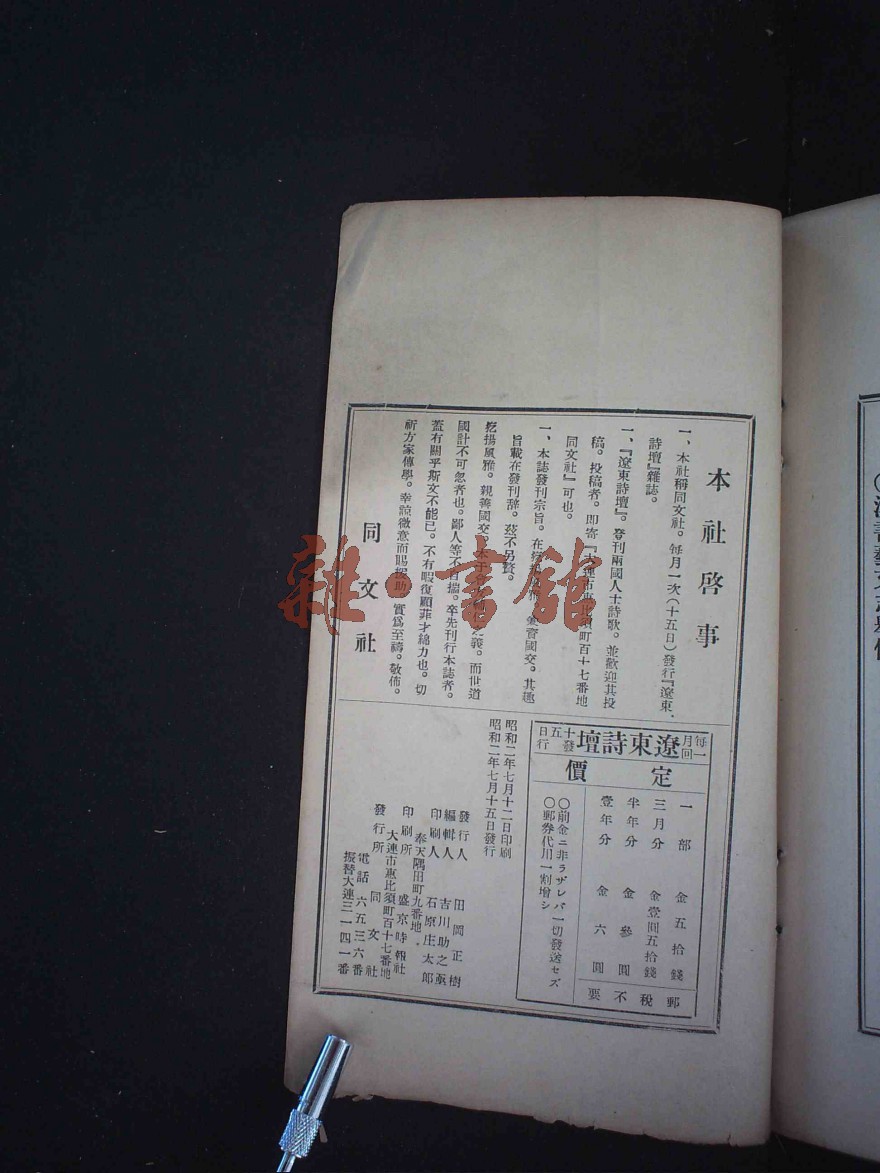 本社啓事
一、本社稱同文社。每月一次（十五日）發行『遼東、
詩壇』雜誌。
一、『遼東詩壇』。登刊兩國人士詩歌。並歡迎其投
稿。投稿者。即寄『大連市惠比須町百十七番地
同文社』可也。
一、本誌發刊宗旨。在 國交。其趣
旨載在發刊辞。茲不另贅。
挖揚風雅。親善國交。 義。而世道
國計不可忽者也。鄙人等不自揣。卒先刊行本誌者。
蓋有關乎斯文不能已。不有暇復顧菲才綿力也。切
祈方家傳學。幸諒微意而賜援助。實爲至禱。敬佈。
同文社
每月一回
遼東詩壇
十五日發行
定價
一部 金五拾錢
三月分 金壹圓五拾錢
半年分 金參圓
壹年分 金六圓
郵稅不要
〇前金ニ非ラザレバ一切發送セズ
〇郵券代用一割增シ
昭和二年七月十二日印刷
昭和二年七月十五日發行
發行人 田岡正樹
編輯人 吉川助之眞
印刷人 石原庄太郎
奉天隅田町九番地。
印刷所 盛京時報社
大連市惠比須町百十七番地
發行所 同文社
電話 六五三六番
振替大連三一四一番
雜·書館